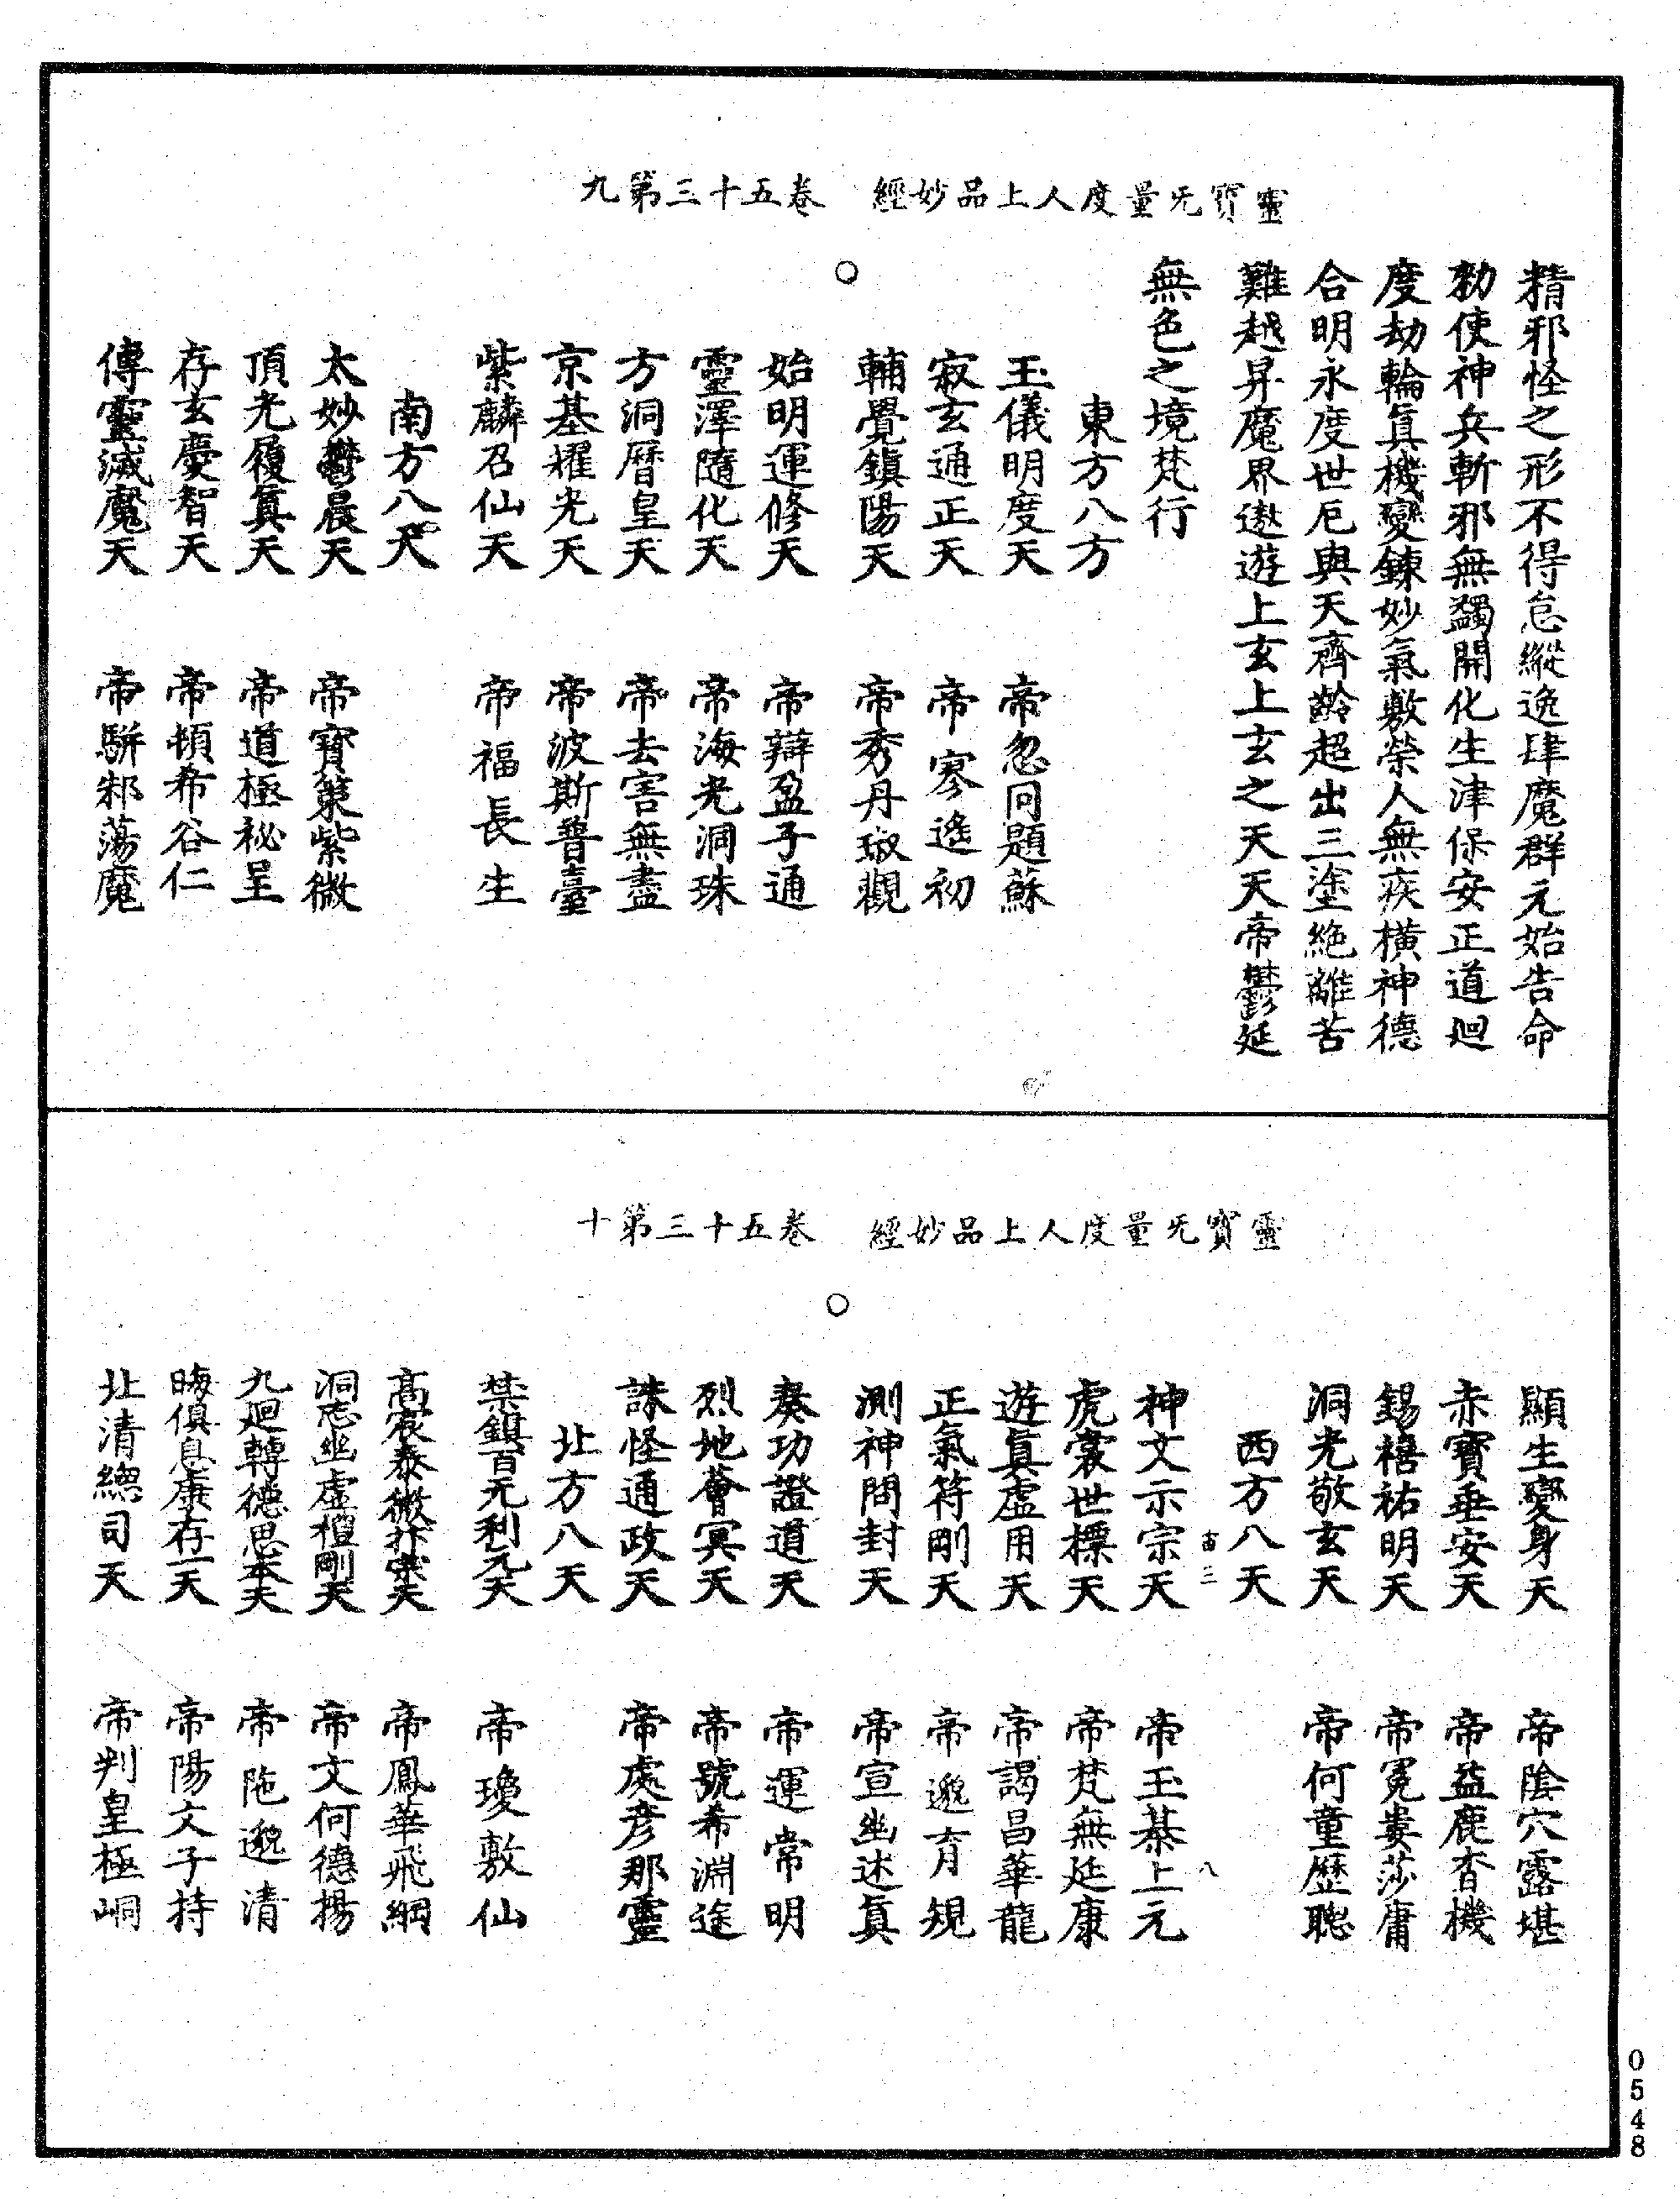 靈寶无量度人上品妙經　卷五十三第九
精邪怪之形不得怠縱逸肆魔群元始告命
勑使神兵斬邪無蠲開化生津保安正道迴
度劫輪眞機變鍊妙氣敷榮人無疾橫神德
合明永度世厄與天齊齡超出三塗絶離苦
難越昇魔界遨遊上玄上玄之天天帝鬱延
無色之境梵行
東方八方
玉儀明度天　帝忽同題蘇
寂玄通正天　帝寥遙初
輔覺鎭陽天　帝秀丹琡觀
始明運修天　帝辯盈子通
靈澤隨化天　帝海光洞珠
方洞曆皇天　帝去害無盡
京基耀光天　帝波斯普臺
紫麟召仙天　帝福長生
南方八天
太妙鬱晨天　帝寶策紫微
頂光履眞天　帝道極祕呈
存玄慶智天　帝頓希谷仁
傳靈滅魔天　帝駢邾蕩魔
靈寶无量度人上品妙經　卷五十三第十
顯生變身天　帝陰穴露堪
赤寶垂安天　帝益鹿杳機
錫禧祐明天　帝冕婁莎庸
洞光敬玄天　帝何童歷聰
西方八天
神文示宗天　帝玉棊上元
虎裳世標天　帝梵無延康
遊眞虛用天　帝謁昌華龍
正氣符剛天　帝邈育規
測神問封天　帝宣幽述眞
奏功證道天　帝運常明
烈地薈冥天　帝號希淵途
誅怪通政天　帝處彥那靈
北方八天
禁鎭百无利元天　帝瓊敷仙
高宸泰微抃宗天　帝鳳華飛綱
洞志幽虛檀剛天　帝文何德揚
九迴轉德思本天　帝陁邈清
晦俱息康存一天　帝陽文子持
北清緫司天　帝判皇極峒
宙三
八
0548